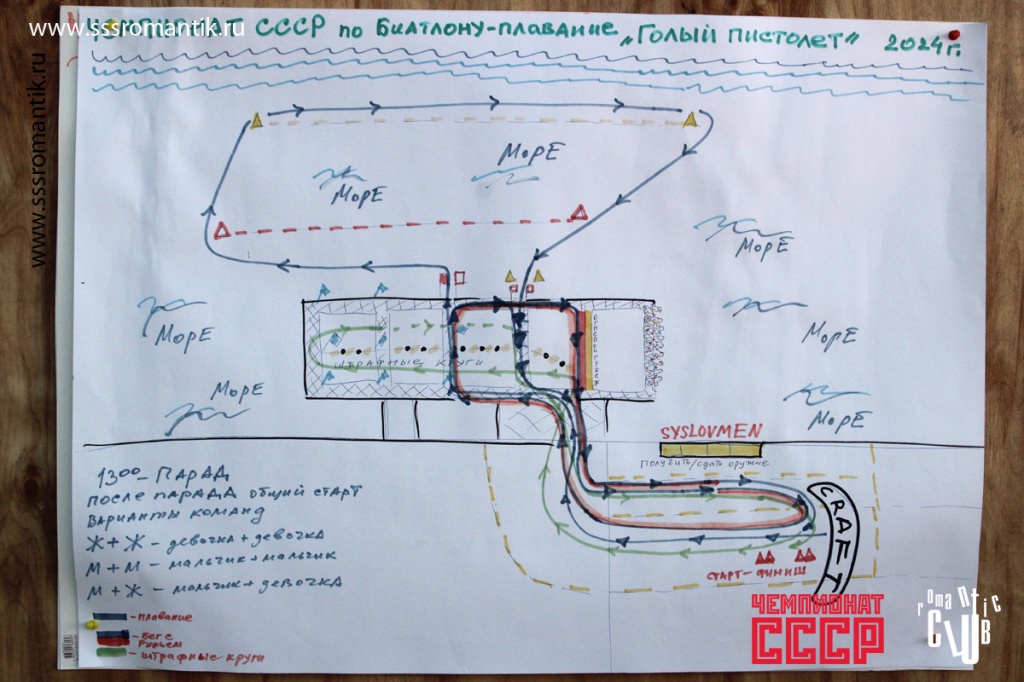 www.sssromantik.ru
www.sssromantik.ru
СССР по Биатлону-плавание „Голый пистолет“ 2024г.
МорЕ
МорЕ
МорЕ
МорЕ
МорЕ
МорЕ
МорЕ
штрафные круги
SYSLOVMEN
получить/сдать оружие
CRAFT
старт-финиш
13⁰⁰- ПАРАД
после парада общий старт
варианты команд
Ж+Ж - девочка+девочка
М+М - мальчик+мальчик
М+Ж - мальчик+девочка
- плавание
- Бег с
ружьем
- штрафные круги
ЧЕМПИОНАТ
СССР
romantic
CLUB